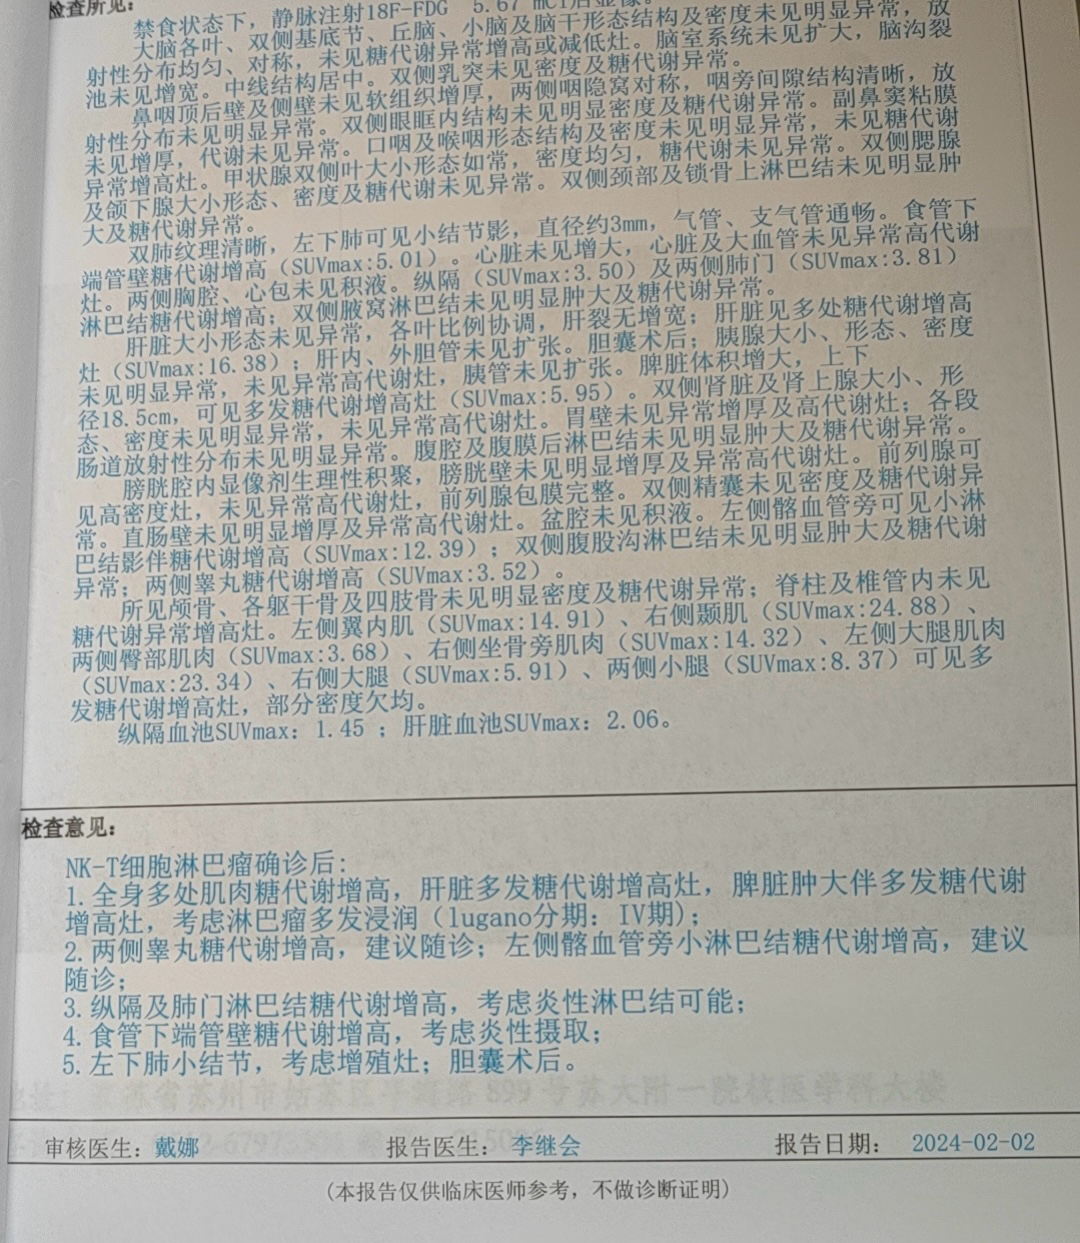 检查所见：
禁食状态下，静脉注射18F-FDG 5.67 mCi后显像。
大脑各叶、双侧基底节、丘脑、小脑及脑干形态结构及密度未见明显异常，放
射性分布均匀、对称，未见糖代谢异常增高或减低灶。脑室系统未见扩大，脑沟裂
池未见增宽。中线结构居中。双侧乳突未见密度及糖代谢异常。
鼻咽顶后壁及侧壁未见软组织增厚，两侧咽隐窝对称，咽旁间隙结构清晰，放
射性分布未见明显异常。双侧眼眶内结构未见明显密度及糖代谢异常。副鼻窦粘膜
未见增厚，代谢未见异常。口咽及喉咽形态结构及密度未见明显异常，未见糖代谢
异常增高灶。甲状腺双侧叶大小形态如常，密度均匀，糖代谢未见异常。双侧腮腺
及颌下腺大小形态、密度及糖代谢未见异常。双侧颈部及锁骨上淋巴结未见明显肿
大及糖代谢异常。
双肺纹理清晰，左下肺可见小结节影，直径约3mm，气管、支气管通畅。食管下
端管壁糖代谢增高（SUVmax:5.01）。心脏未见增大，心脏及大血管未见异常高代谢
灶。两侧胸腔、心包未见积液。纵隔（SUVmax:3.50）及两侧肺门（SUVmax:3.81）
淋巴结糖代谢增高；双侧腋窝淋巴结未见明显肿大及糖代谢异常。
肝脏大小形态未见异常，各叶比例协调，肝裂无增宽；肝脏见多处糖代谢增高
灶（SUVmax:16.38）；肝内、外胆管未见扩张。胆囊术后；胰腺大小、形态、密度
未见明显异常，未见异常高代谢灶，胰管未见扩张。脾脏体积增大，上下
径18.5cm，可见多发糖代谢增高灶（SUVmax:5.95）。双侧肾脏及肾上腺大小、形
态、密度未见明显异常，未见异常高代谢灶。胃壁未见异常增厚及高代谢灶；各段
肠道放射性分布未见明显异常。腹腔及腹膜后淋巴结未见明显肿大及糖代谢异常。
膀胱腔内显像剂生理性积聚，膀胱壁未见明显增厚及异常高代谢灶。前列腺可
见高密度灶，未见异常高代谢灶，前列腺包膜完整。双侧精囊未见密度及糖代谢异
常。直肠壁未见明显增厚及异常高代谢灶。盆腔未见积液。左侧髂血管旁可见小淋
巴结影伴糖代谢增高（SUVmax:12.39）；双侧腹股沟淋巴结未见明显肿大及糖代谢
异常；两侧睾丸糖代谢增高（SUVmax:3.52）。
所见颅骨、各躯干骨及四肢骨未见明显密度及糖代谢异常；脊柱及椎管内未见
糖代谢异常增高灶。左侧翼内肌（SUVmax:14.91）、右侧颞肌（SUVmax:24.88）、
两侧臀部肌肉（SUVmax:3.68）、右侧坐骨旁肌肉（SUVmax:14.32）、左侧大腿肌肉
（SUVmax:23.34）、右侧大腿（SUVmax:5.91）、两侧小腿（SUVmax:8.37）可见多
发糖代谢增高灶，部分密度欠均。
纵隔血池SUVmax：1.45 ；肝脏血池SUVmax：2.06。
检查意见：
NK-T细胞淋巴瘤确诊后：
1. 全身多处肌肉糖代谢增高，肝脏多发糖代谢增高灶，脾脏肿大伴多发糖代谢
增高灶，考虑淋巴瘤多发浸润（lugano分期：IV期）；
2. 两侧睾丸糖代谢增高，建议随诊；左侧髂血管旁小淋巴结糖代谢增高，建议
随诊；
3. 纵隔及肺门淋巴结糖代谢增高，考虑炎性淋巴结可能；
4. 食管下端管壁糖代谢增高，考虑炎性摄取；
5. 左下肺小结节，考虑增殖灶；胆囊术后。
审核医生：戴娜 报告医生：李继会 报告日期： 2024-02-02
（本报告仅供临床医师参考，不做诊断证明）